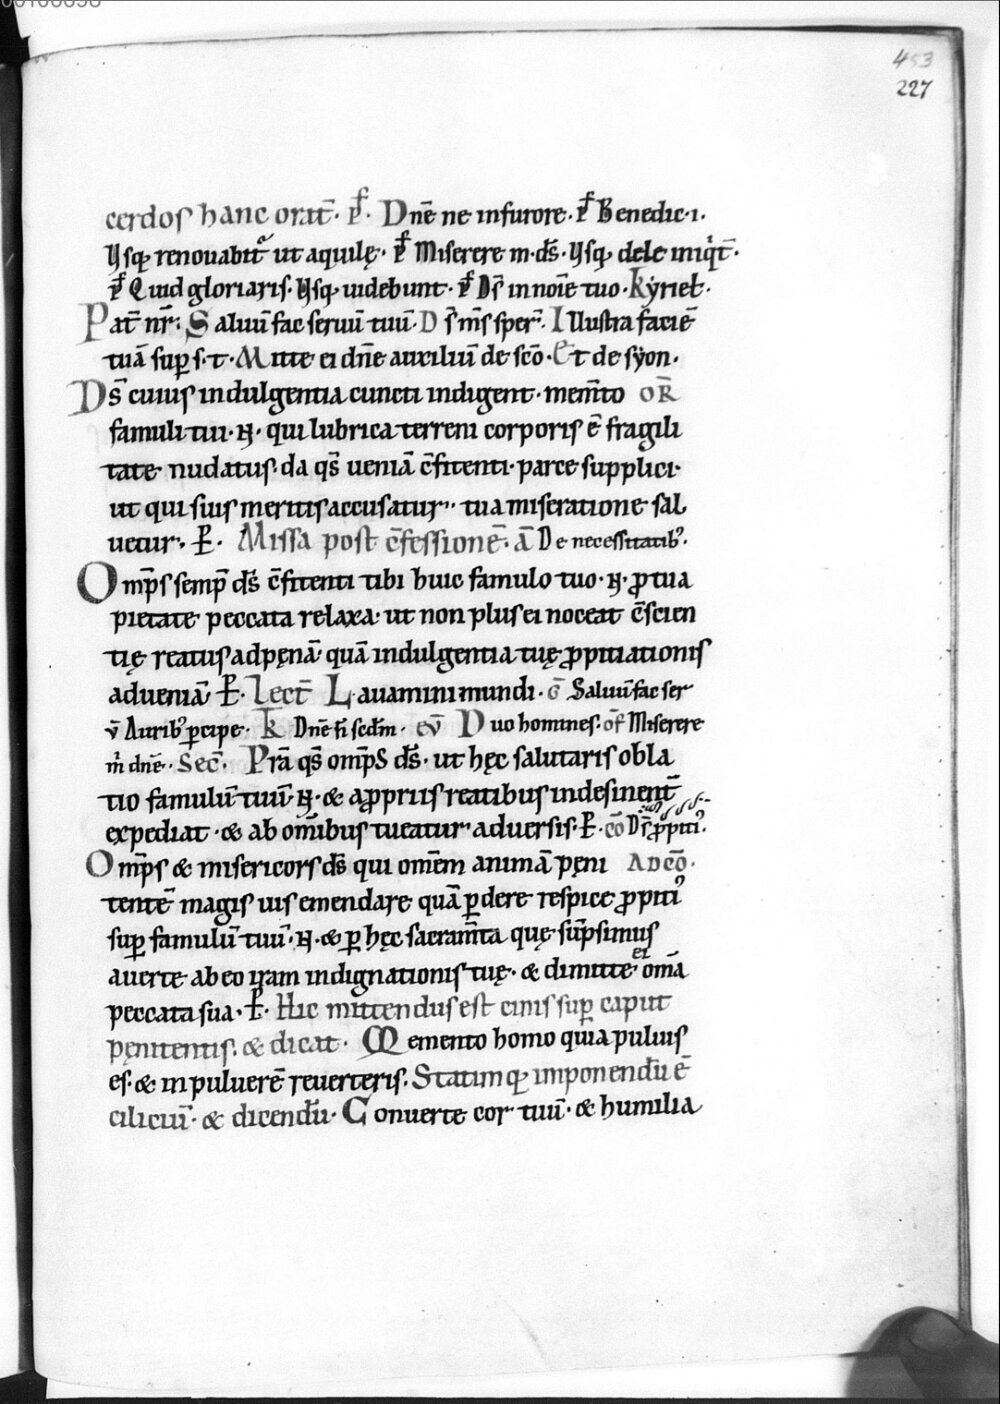 453
227
cerdos hanc orat̄. p̄s. Dn̄e ne in furore. p̄s Benedic. i.
Usq; renouabit̄ ut aquilę. p̄s Miserere m. ds̄. Usq; dele iniqt̄.
p̄s Quid gloriaris. Usq; uidebunt. p̄s Ds̄ in noīe tuo. Kyriel.
Pat̄ nr̄. Saluū fac seruū tuū. Ds̄ ms̄ sper̄. Illustra faciē
tuā sup̄ s. t. Mitte ei dn̄e auxiliū de sc̄o. Et de syon.
Ds̄ cuius indulgentia cuncti indigent. mem̄to OR̄
famuli tui. N. qui lubrica terreni corporis ē fragili
tate nudatus. da qs̄ ueniā c̄fitenti. parce supplici.
ut qui suis meritis accusatur. tua miseratione sal
uetur. P. Missa post c̄fessionē. ā De necessitatib;.
Omp̄s semp̄ ds̄ c̄fitenti tibi huic famulo tuo. N. p̱ tua
pietate peccata relaxa. ut non plus ei noceat c̄scien
tię reatus ad pęnā quā indulgentia tuę p̱pitiationis
adueniā P. Lect̄ Lauamini mundi. ḡ Saluū fac ser
v̄ Aurib; p̱cipe. R̄ Dn̄e n̄ scdm̄. ev̄ Duo homines. of̄ Miserere
m̄ dn̄e. Sec̄. Pr̄a qs̄ omp̄s ds̄. ut hęc salutaris obla
tio famulū tuū. N. & a p̱priis reatibus indesinent̄
expediat. & ab om̄ibus tueatur aduersis. P. cō Ds̄ p̱piti;.
Omp̄s & misericors ds̄ qui omēm animā pęni AD CŌ.
tentē magis uis emendare quā p̱dere respice p̱piti;
sup̄ famulū tuū. N. & p̱ hęc sacram̄ta quę sūpsimus
auerte ab eo iram indignationis tuę. & dimitte ei om̄a
peccata sua. P. Hic mittendus est cinis sup̄ caput
pęnitentis. & dicat. Memento homo quia puluis
es. & in puluerē reuerteris. Statimq; imponendū ē
ciliciū. & dicendū. Conuerte cor tuū. & humilia